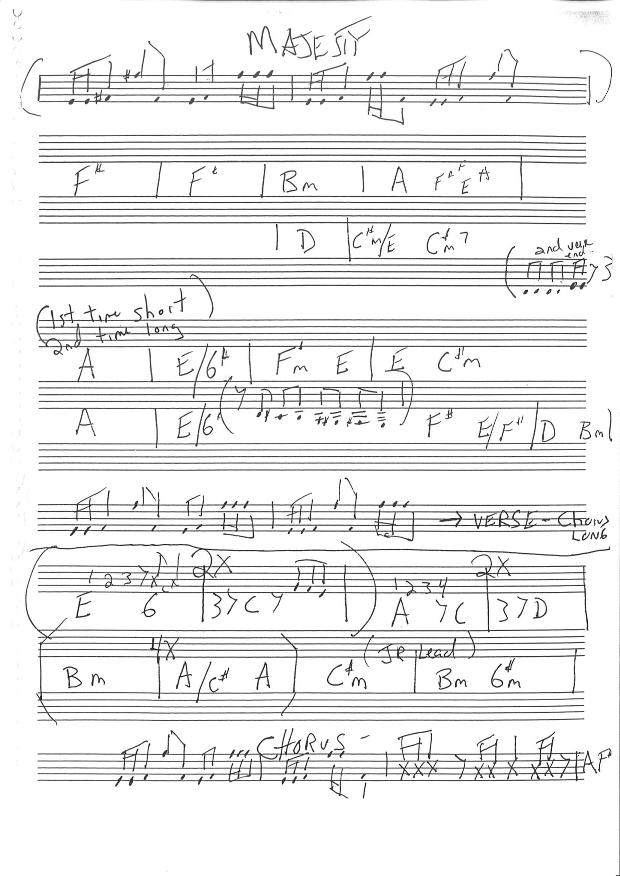 MAJESTY
F# | F# | Bm | A F# F E A |
| D | C#m/E C#m7
2nd verse end
(1st time short)
2nd time long
A | E/G# | F#m E | E C#m
A | E/G F# E/F# | D Bm |
→ VERSE - Chorus
LONG
1 2 3 7 x x 2X 1 2 3 4 2X
E G | 3 7 C 7 | A 7 C | 3 7 D
4X (JR Lead)
Bm | A/C# A | C#m | Bm G#m |
CHORUS -
xxx 7 xx x xx 7 A F#